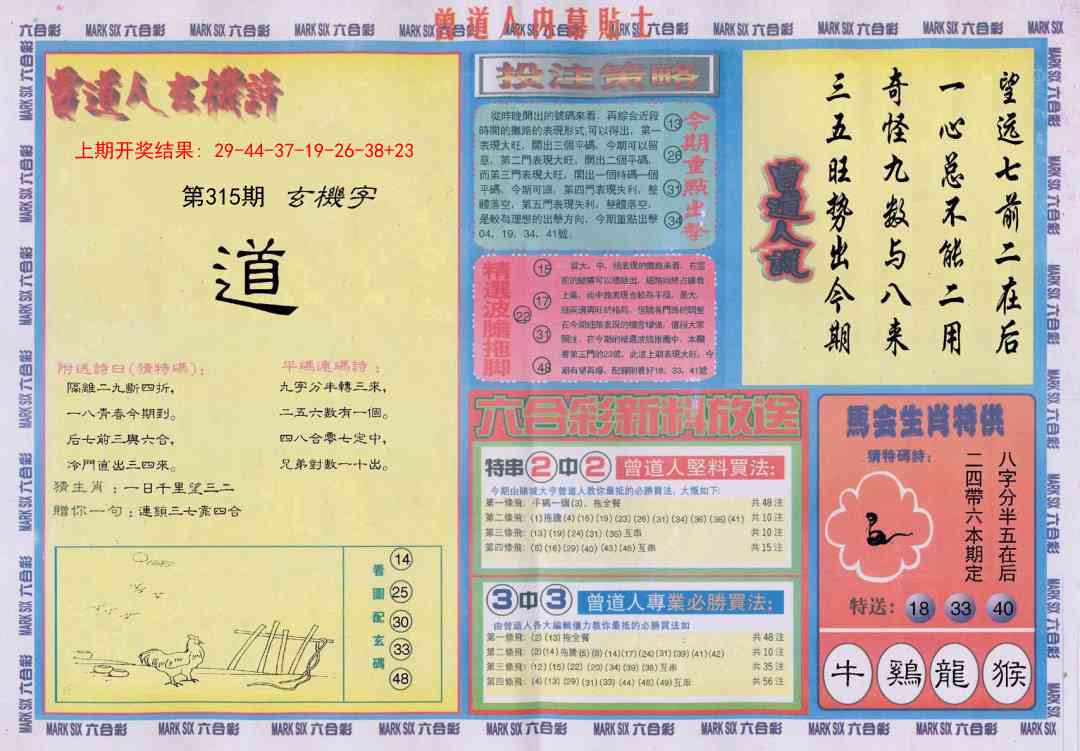 曾道人内幕貼士
MARK SIX 六合彩
曾道人玄機詩
上期开奖结果: 29-44-37-19-26-38+23
第315期 玄機字
道
附送詩曰(猜特碼):
隔離二九斷四折,
一八青春今期到。
后七前三與六合,
冷門直出三四來。
平碼連碼詩:
九字分半轉三來,
二五六數有一個。
四八合零七定中,
兄弟對數一十出。
猜生肖:一日千里望三二
贈你一句:連類三七靠四合
看圖配玄碼
14
25
30
33
48
投注策略
從昨晚開出的號碼來看,再綜合近段
時間的攤路的表現形式,可以得出,第一
表現大旺,開出三個平碼,今期可以留
意,第二門表現大旺,開出二個平碼,
而第三門表現大旺,開出一個特碼一個
平碼,今期可跟,第四門表現失利,整
體落空,第五門表現失利,整體落空,
是較為理想的出擊方向,今期重點出擊
04、19、34、41號.
今期重點出擊
13
26
31
34
精選波膽拖脚
15
17
22
31
48
六合彩新料放送
特串2中2 曾道人堅料買法:
今期由賭城大亨曾道人教你最抵的必勝買法,大慨如下:
第一條飛: 平碼一個(3), 拖全餐 共48注
第二條飛: (1)拖膽(4)(15)(19)(23)(26)(31)(34)(36)(38)(41) 共10注
第三條飛: (13)(19)(24)(31)(35)互串 共10注
第四條飛: (5)(16)(29)(40)(43)(45)互串 共15注
3中3 曾道人專業必勝買法:
由曾道人各大編輯傾力教你最抵的必勝買法如
第一條飛: (2)(13)拖全餐 共48注
第二條飛: (2)(14)拖膽(5)(8)(14)(17)(24)(31)(39)(41)(42) 共10注
第三條飛: (12)(15)(22)(20)(34)(39)(36)互串 共35注
第四條飛: (4)(13)(29)(31)(33)(44)(48)(49)互串 共56注
曾道人說
望远七前二在后
一心总不能二用
奇怪九数与八来
三五旺势出今期
馬会生肖特供
猜特碼詩:
八字分半五在后
二四帶六本期定
特送: 18 33 40
牛 鷄 龍 猴